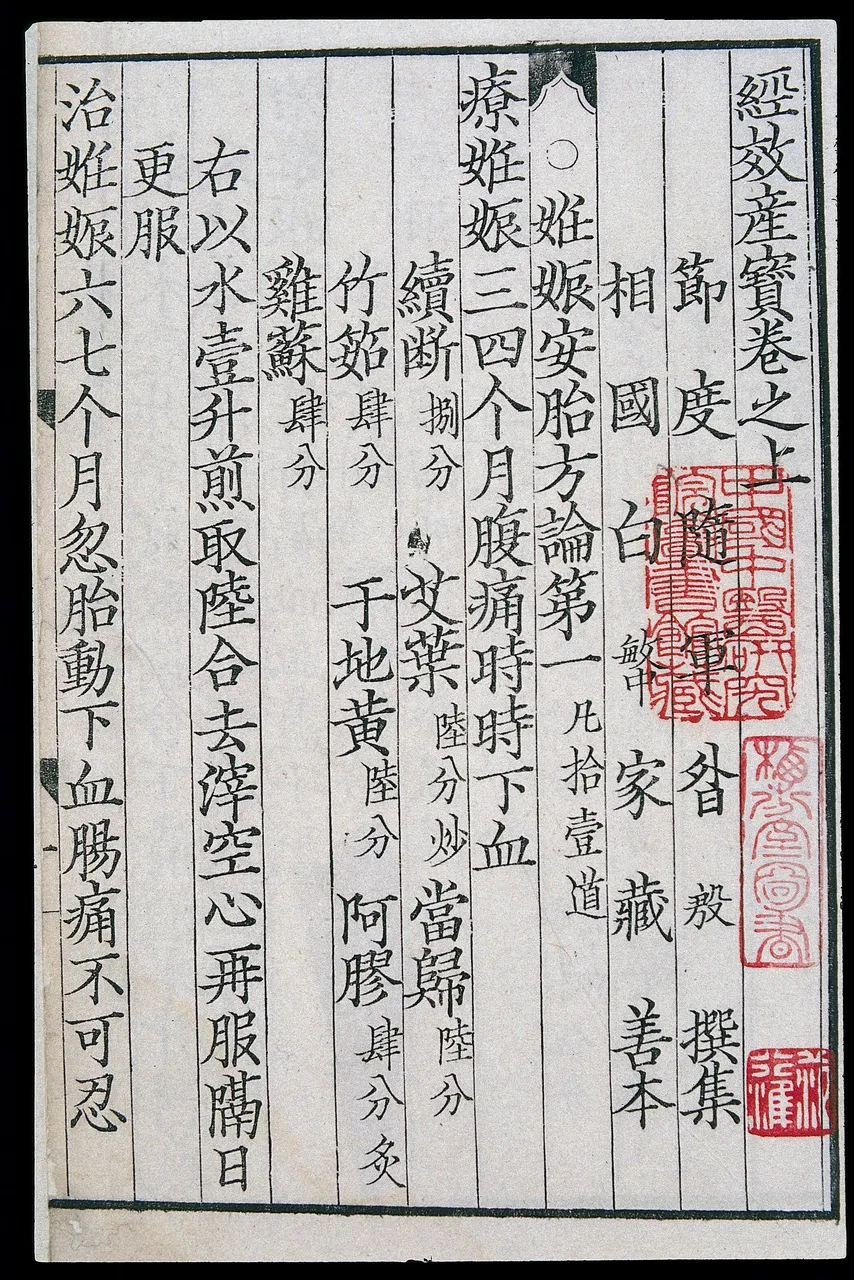 經效產寳卷之上
節度隨軍昝殷撰集
相國白敏中家藏善本
○姙娠安胎方論第一凡拾壹道
療姙娠三四个月腹痛時時下血
續斷捌分 艾葉陸分炒 當歸陸分
竹筎肆分 干地黄陸分 阿膠肆分炙
雞蘇肆分
右以水壹升煎取陸合去滓空心再服隔日
更服
治姙娠六七个月忽胎動下血腸痛不可忍
中國中醫研究院圖書館藏